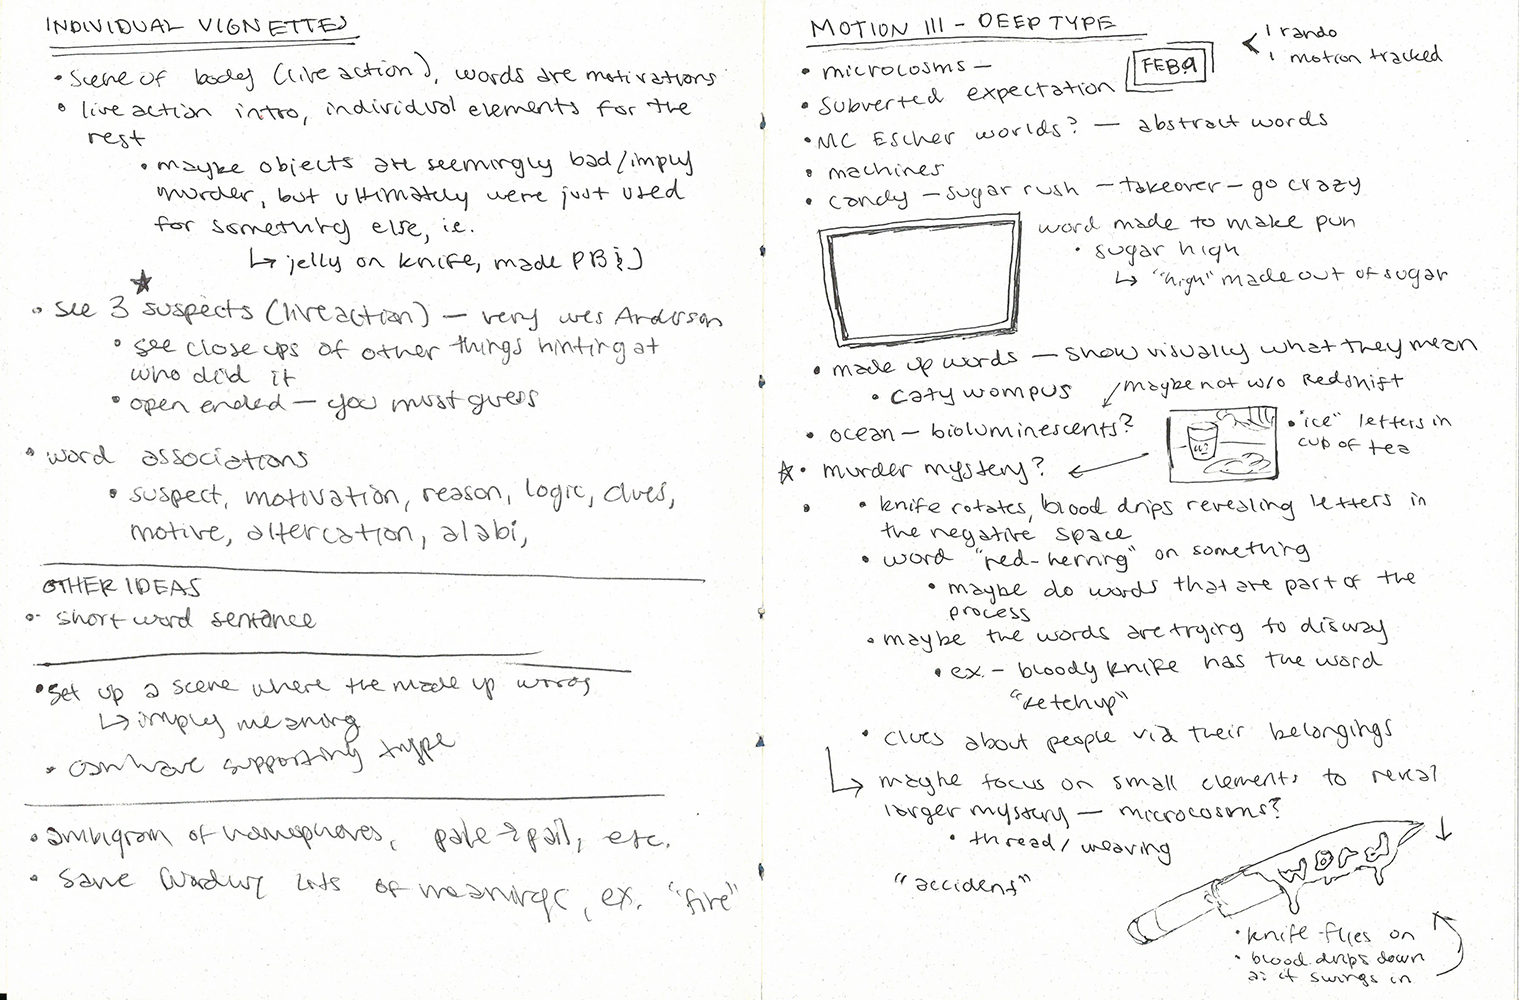 INDIVIDUAL VIGNETTES
• scene of body (live action), words are motivations
• live action intro, individual elements for the
rest
• maybe objects are seemingly bad/imply
murder, but ultimately were just used
for something else, ie.
↳ jelly on knife, made PB&J
• see 3 suspects (live action) — very wes Anderson
• see close ups of other things hinting at
who did it
• open ended — you must guess
• word associations
• suspect, motivation, reason, logic, clues,
motive, altercation, alabi,
OTHER IDEAS
• short word sentence
• set up a scene where the made up words
↳ imply meaning
• can have supporting type
• ambigram of homophones, pale → pail, etc.
• same word w/ lots of meanings, ex. "fire"
MOTION III - DEEP TYPE
FEB 9
< 1 rando
1 motion tracked
• microcosms —
• subverted expectation
• MC Escher worlds? — abstract words
• machines
• candy — sugar rush — takeover — go crazy
word made to make pun
• sugar high
↳ "high" made out of sugar
• made up words — show visually what they mean
• catywompus
maybe not w/o Redshift
• ocean — bioluminescents?
• "ice" letters in
cup of tea
• murder mystery?
• knife rotates, blood drips revealing letters in
the negative space
• word "red-herring" on something
• maybe do words that are part of the
process
• maybe the words are trying to disway
• ex. — bloody knife has the word
"ketchup"
• clues about people via their belongings
↳ maybe focus on small elements to reveal
larger mystery — microcosms?
• thread/weaving
"accident"
word
• knife flies on
• blood drips down
as it swings in